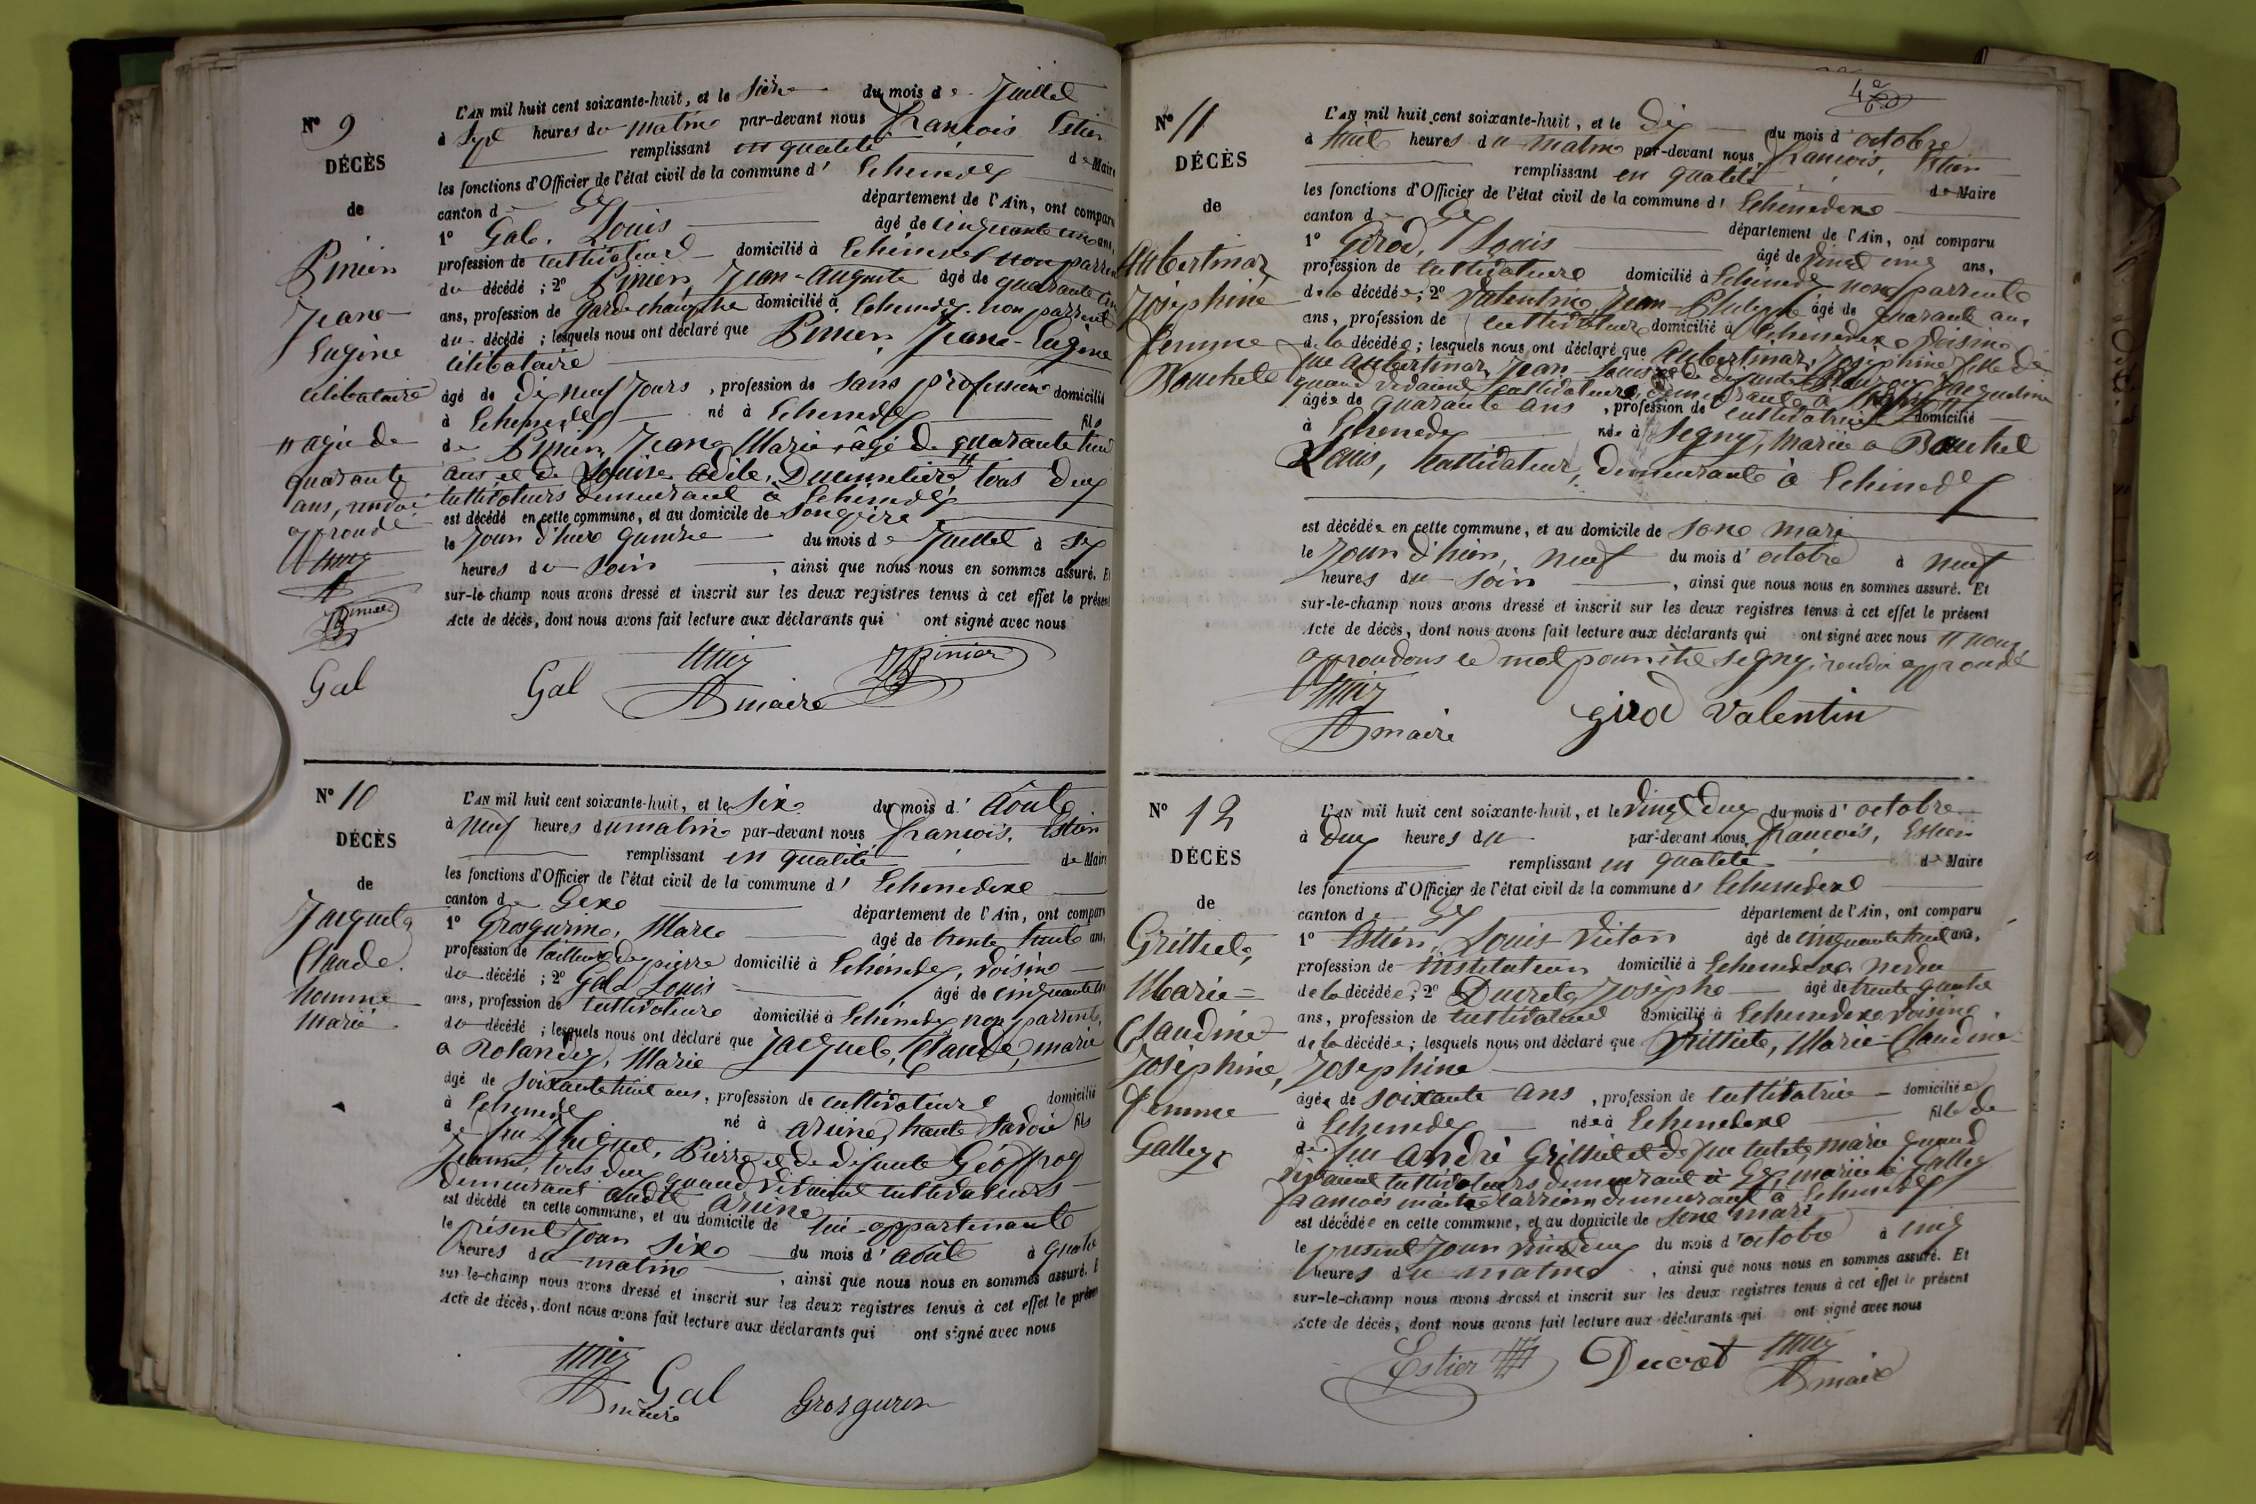 N° 9
DÉCÈS
de
Pinier
Jean-
Eugène
célibataire
agé de
quarante
ans,
approuvé
Gal
L'AN mil huit cent soixante-huit, et le seize du mois de Juillet
à sept heures du matin par-devant nous François Estier
remplissant en qualité de Maire
les fonctions d'Officier de l'état civil de la commune d' Echenevex
canton de Gex département de l'Ain, ont comparu
1° Gal, Louis âgé de cinquante ans,
profession de cultivateur domicilié à Echenevex non parrent
du décédé ; 2° Pinier, Jean-Auguste âgé de quarante
ans, profession de garde champêtre domicilié à Echenevex non parrent
du décédé ; lesquels nous ont déclaré que Pinier, Jean-Eugène
célibataire
âgé de dix neuf jours, profession de sans profession domicilié
à Echenevex né à Echenevex fils
de Pinier Jean Marie âgé de quarante
ans, et de Louise Adèle, tous deux
cultivateurs demeurant à Echenevex
est décédé en cette commune, et au domicile de son père
le jour d'hier quinze du mois de Juillet à six
heures du soir, ainsi que nous nous en sommes assuré. Et
sur-le-champ nous avons dressé et inscrit sur les deux registres tenus à cet effet le présent
Acte de décès, dont nous avons fait lecture aux déclarants qui ont signé avec nous
Gal maire Pinier
N° 10
DÉCÈS
de
Jacquet
Claude
homme
marié
L'AN mil huit cent soixante-huit, et le six du mois d' Août
à neuf heures du matin par-devant nous François, Estier
remplissant en qualité de Maire
les fonctions d'Officier de l'état civil de la commune d' Echenevex
canton de Gex département de l'Ain, ont comparu
1° Grosgurin, Marc âgé de trente huit ans,
profession de tailleur de pierre domicilié à Echenevex, voisin
du décédé ; 2° Gal Louis âgé de cinquante
ans, profession de cultivateur domicilié à Echenevex non parrent,
du décédé ; lesquels nous ont déclaré que Jacquet, Claude, marié
a Rolandez, Marie
âgé de soixante huit ans, profession de cultivateur domicilié
à Echenevex né à Arcine, haute Savoie fils
de feu Jacquet, Pierre et de défunte Geoffroy
Jeanne, tous deux quand vivaient cultivateurs
demeurant audit Arcine
est décédé en cette commune, et au domicile de lui appartenant
le présent jour six du mois d' août à quatre
heures du matin, ainsi que nous nous en sommes assuré. E
sur-le-champ nous avons dressé et inscrit sur les deux registres tenus à cet effet le présen
Acte de décès, dont nous avons fait lecture aux déclarants qui ont signé avec nous
maire Gal Grosgurin
N° 11
DÉCÈS
de
Aubertinaz
Joséphine
femme
Bouchet
L'AN mil huit cent soixante-huit, et le dix du mois d' octobre
à huit heures du matin par-devant nous, François, Estier
remplissant en qualité de Maire
les fonctions d'Officier de l'état civil de la commune d' Echenevex
canton de Gex département de l'Ain, ont comparu
1° Girod, Louis âgé de vingt cinq ans,
profession de cultivateur domicilié à Echenevex non parrent
de la décédée ; 2° Valentin, Jean-Philippe âgé de quarante ans
ans, profession de cultivateur domicilié à Echenevex voisin
de la décédée ; lesquels nous ont déclaré que Aubertinaz, Joséphine fille de
feu Aubertinaz Jean-Louis et de défunte Jacqueline
quand vivaient cultivateurs demeurant à
âgée de quarante ans, profession de cultivatrice domicilié
à Echenevex née à Segny, mariée a Bouchet
Louis, cultivateur, demeurant à Echenevex
est décédée en cette commune, et au domicile de son mari
le jour d'hier, neuf du mois d' octobre à neuf
heures du soir, ainsi que nous nous en sommes assuré. Et
sur-le-champ nous avons dressé et inscrit sur les deux registres tenus à cet effet le présent
Acte de décès, dont nous avons fait lecture aux déclarants qui ont signé avec nous nous
approuvons le mot Segny, approuvé
maire girod valentin
N° 12
DÉCÈS
de
Grittiet,
Marie-
Claudine
Joséphine,
femme
Galley
L'AN mil huit cent soixante-huit, et le vingt deux du mois d' octobre
à deux heures du par-devant nous, François, Estier
remplissant en qualité de Maire
les fonctions d'Officier de l'état civil de la commune d' Echenevex
canton de Gex département de l'Ain, ont comparu
1° Estier, Louis Victor âgé de cinquante huit ans,
profession de instituteur domicilié à Echenevex neveu
de la décédée ; 2° Ducret, Josèphe âgé de trente quatre
ans, profession de cultivateur domicilié à Echenevex voisin
de la décédée ; lesquels nous ont déclaré que Grittiet, Marie-Claudine
Josephine
âgée de soixante ans, profession de cultivatrice domiciliée
à Echenevex née à Echenevex fille de
de feu André Grittiet et de feu marie quand
vivaient cultivateurs demeurant à Gex, mariée à Galley
François maître carrier demeurant à Echenevex
est décédée en cette commune, et au domicile de son mari
le présent jour vingt deux du mois d' octobre à cinq
heures du matin, ainsi que nous nous en sommes assuré. Et
sur-le-champ nous avons dressé et inscrit sur les deux registres tenus à cet effet le présent
Acte de décès, dont nous avons fait lecture aux déclarants qui ont signé avec nous
Estier Ducret maire